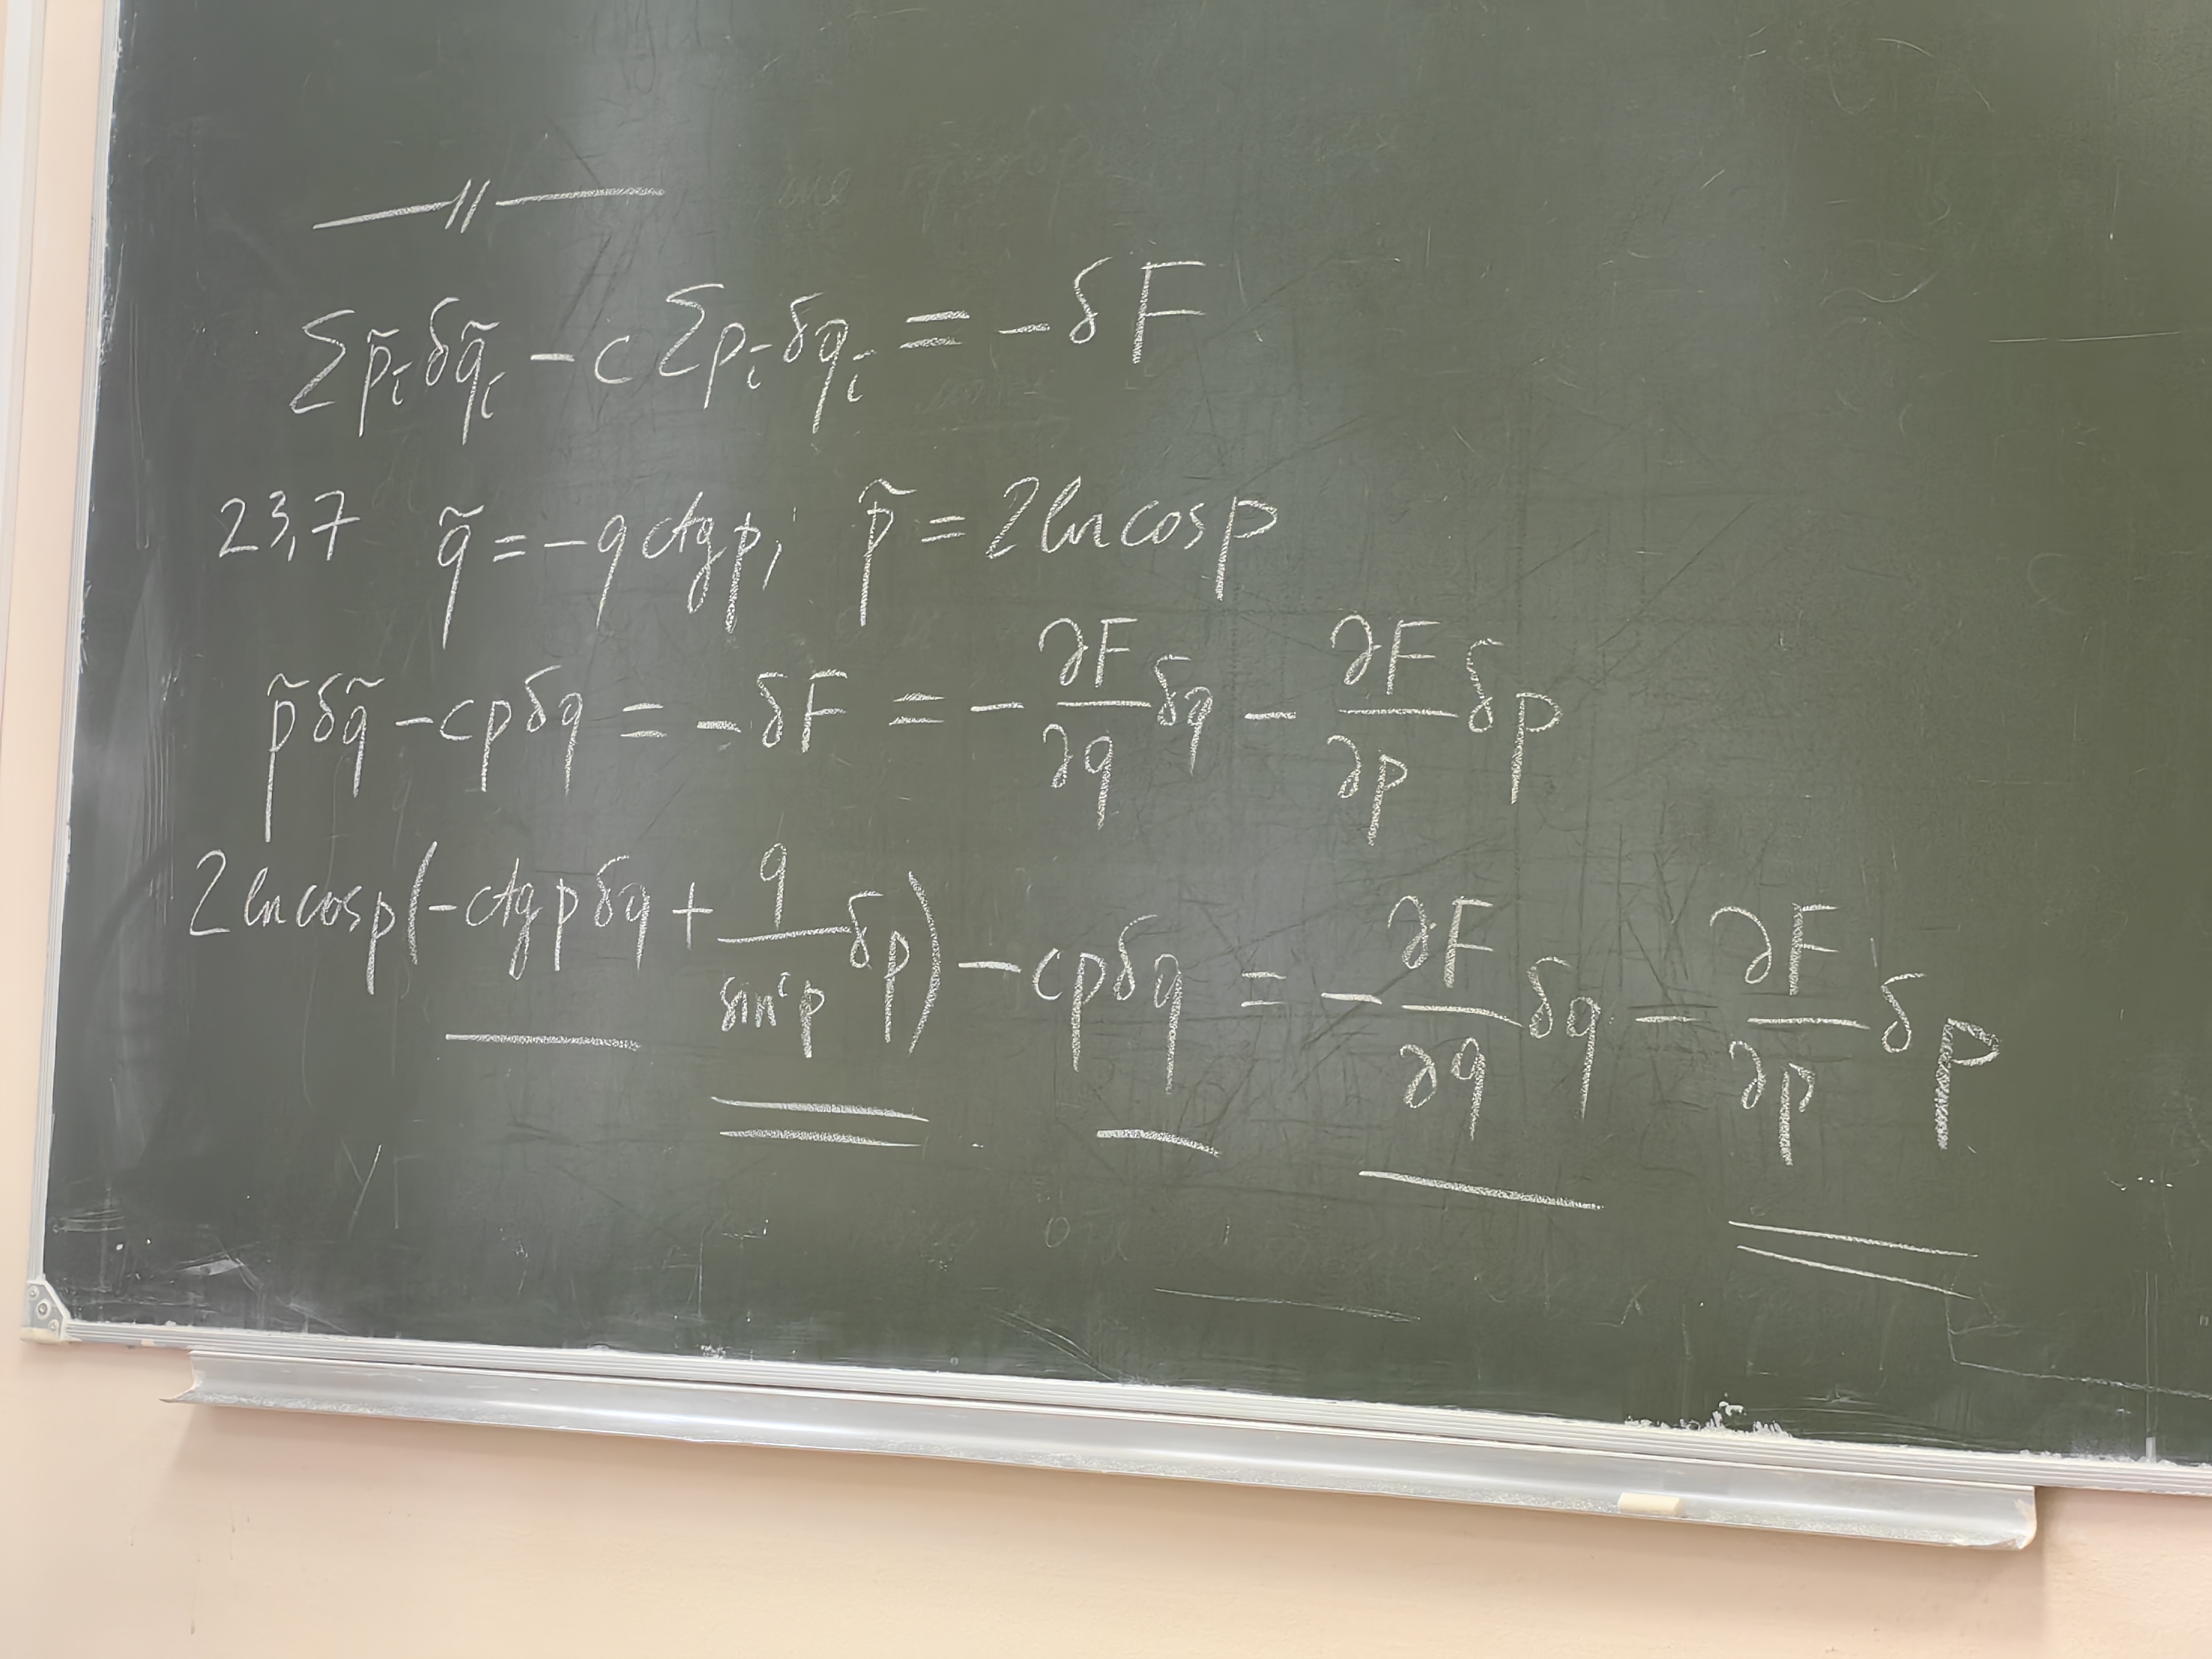 —//—
∑p̃ᵢδq̃ᵢ - c∑pᵢδqᵢ = -δF
23,7 q̃ = -q ctg p; p̃ = 2 ln cos p
p̃δq̃ - cpδq = -δF = -∂F/∂q δq - ∂F/∂p δp
2 ln cos p(-ctg p δq + q/sin²p δp) - cpδq = -∂F/∂q δq - ∂F/∂p δp